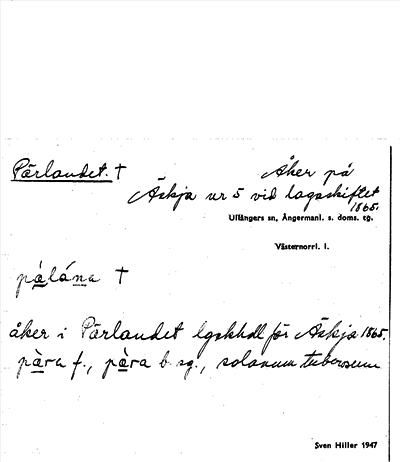 Pärlandet. †
Åker på
Äskja nr 5 vid lagaskiftet
1865.
Ullångers sn, Ångermanl. s. doms. tg.
Västernorrl. l.
pàlána †
åker i Pärlandet lgskhdl för Äskja 1865.
pàra f., pàra b. sg., solanum tuberosum
Sven Hiller 1947